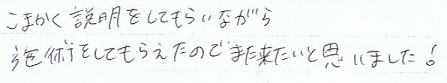 こまかく説明をしてもらいながら
施術をしてもらえたのでまた来たいと思いました!